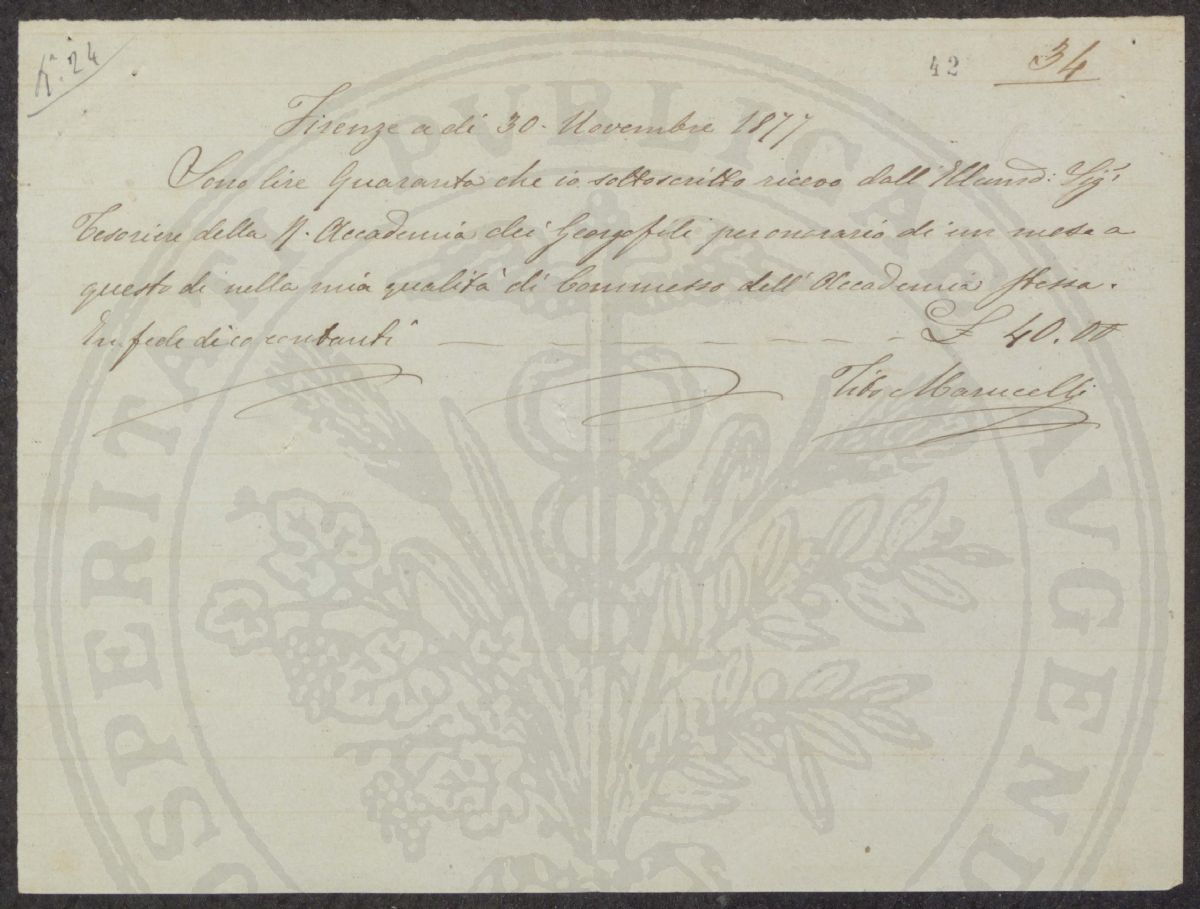 N.º 24
42
34
Firenze a dì 30. Novembre 1877
Sono lire Quaranta che io sottoscritto ricevo dall' Illumo: Sig.
Tesoriere della R. Accademia dei Georgofili per onorario di un mese a
questo dì nella mia qualità di Commesso dell' Accademia stessa.
In fede di co contanti — — — — — — — £ 40.00
Tito Marucelli
PROSPERITATI PUBLICAE AUGENDAE